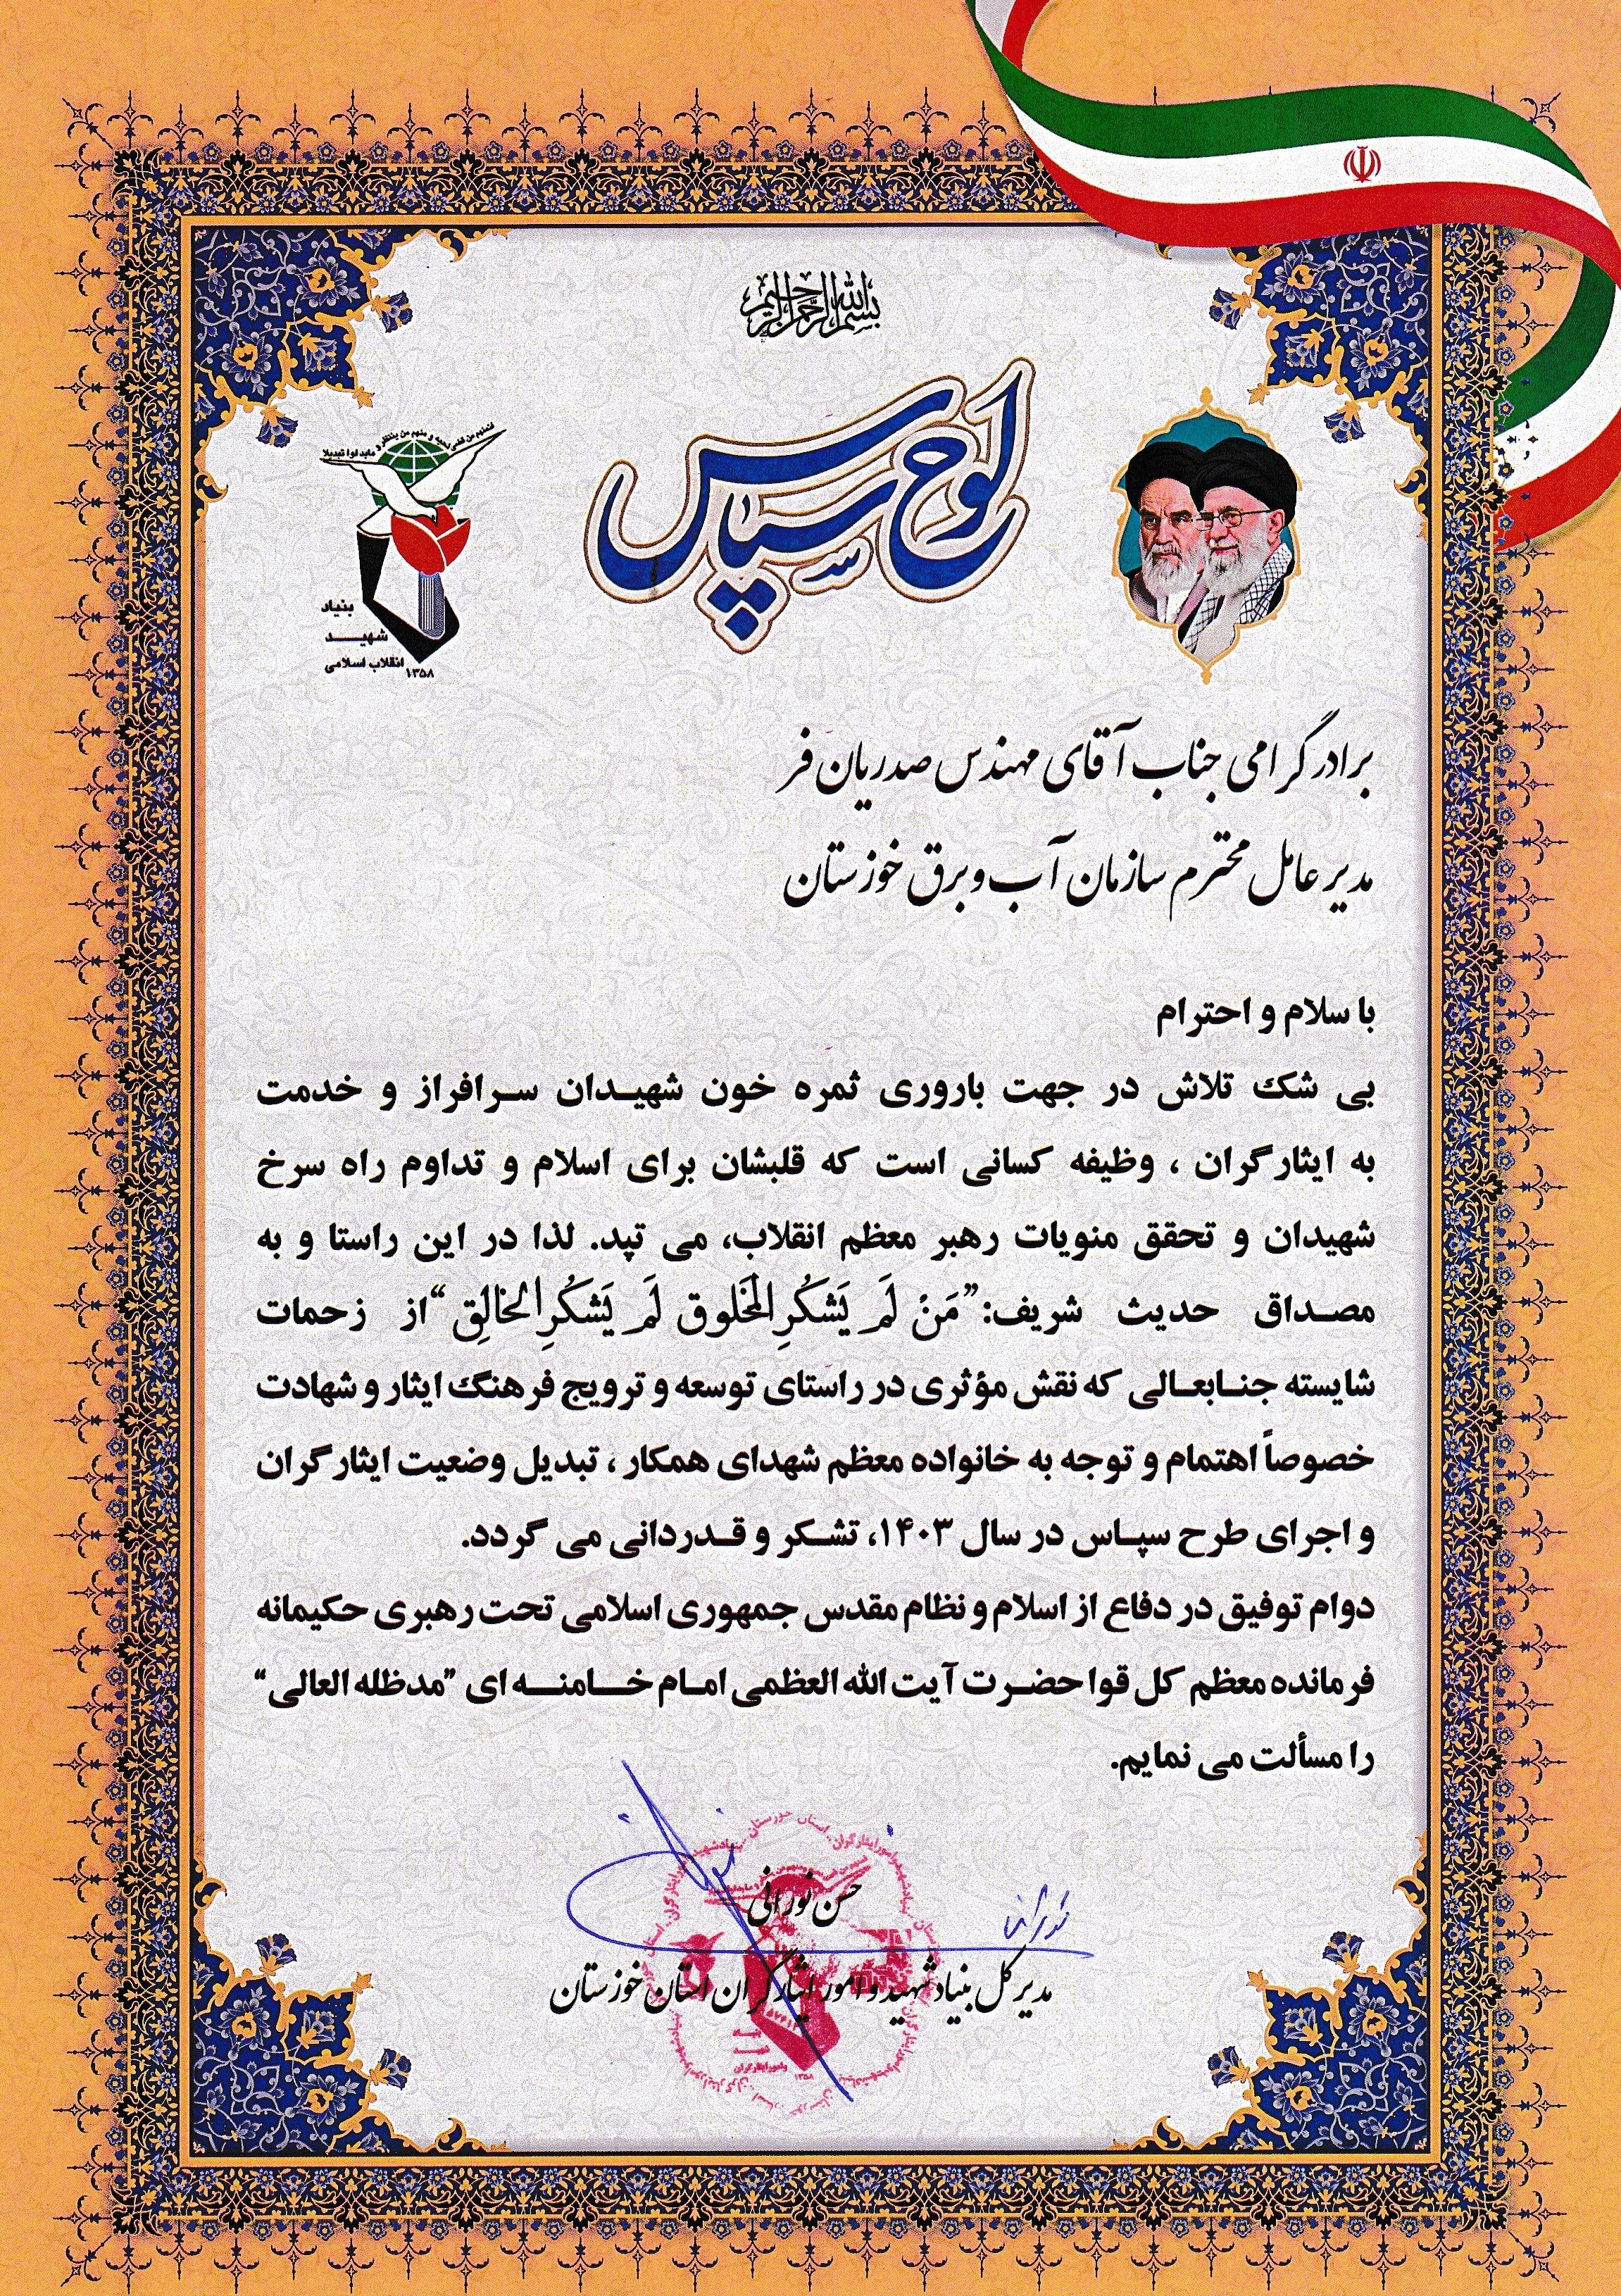 بسم الله الرحمن الرحیم
لوح سپاس
فمنهم من قضی نحبه و منهم من ینتظر و مابدلوا تبدیلا
بنیاد
شهیـــد
انقلاب اسلامی
۱۳۵۸
برادر گرامی جناب آقای مهندس صدریان فر
مدیر عامل محترم سازمان آب و برق خوزستان
با سلام و احترام
بی شک تلاش در جهت باروری ثمره خون شهیـدان سـرافراز و خدمت
به ایثارگران ، وظیفه کسانی است که قلبشان برای اسلام و تداوم راه سرخ
شهیدان و تحقق منویات رهبر معظم انقلاب، می تپد. لذا در این راستا و به
مصـداق حدیث شریف:”مَنْ لَم یَشکُرِ المَخلوق لَم یَشکُرِ الخالِق“از زحمات
شایسته جنـابعـالی که نقش مؤثری در راستای توسعه و ترویج فرهنگ ایثار و شهادت
خصوصاً اهتمام و توجه به خانواده معظم شهدای همکار ، تبدیل وضعیت ایثارگران
و اجرای طرح سپـاس در سال ۱۴۰۳، تشـکر و قـدردانی می گردد.
دوام توفیق در دفاع از اسلام و نظام مقدس جمهوری اسلامی تحت رهبری حکیمانه
فرمانده معظم کل قوا حضـرت آیت الله العظمی امـام خـــامنـــه ای ”مدظله العالی“
را مسألت می نمایم.
حسن نورانی
مدیر کل بنیاد شهید و امور ایثارگران استان خوزستان